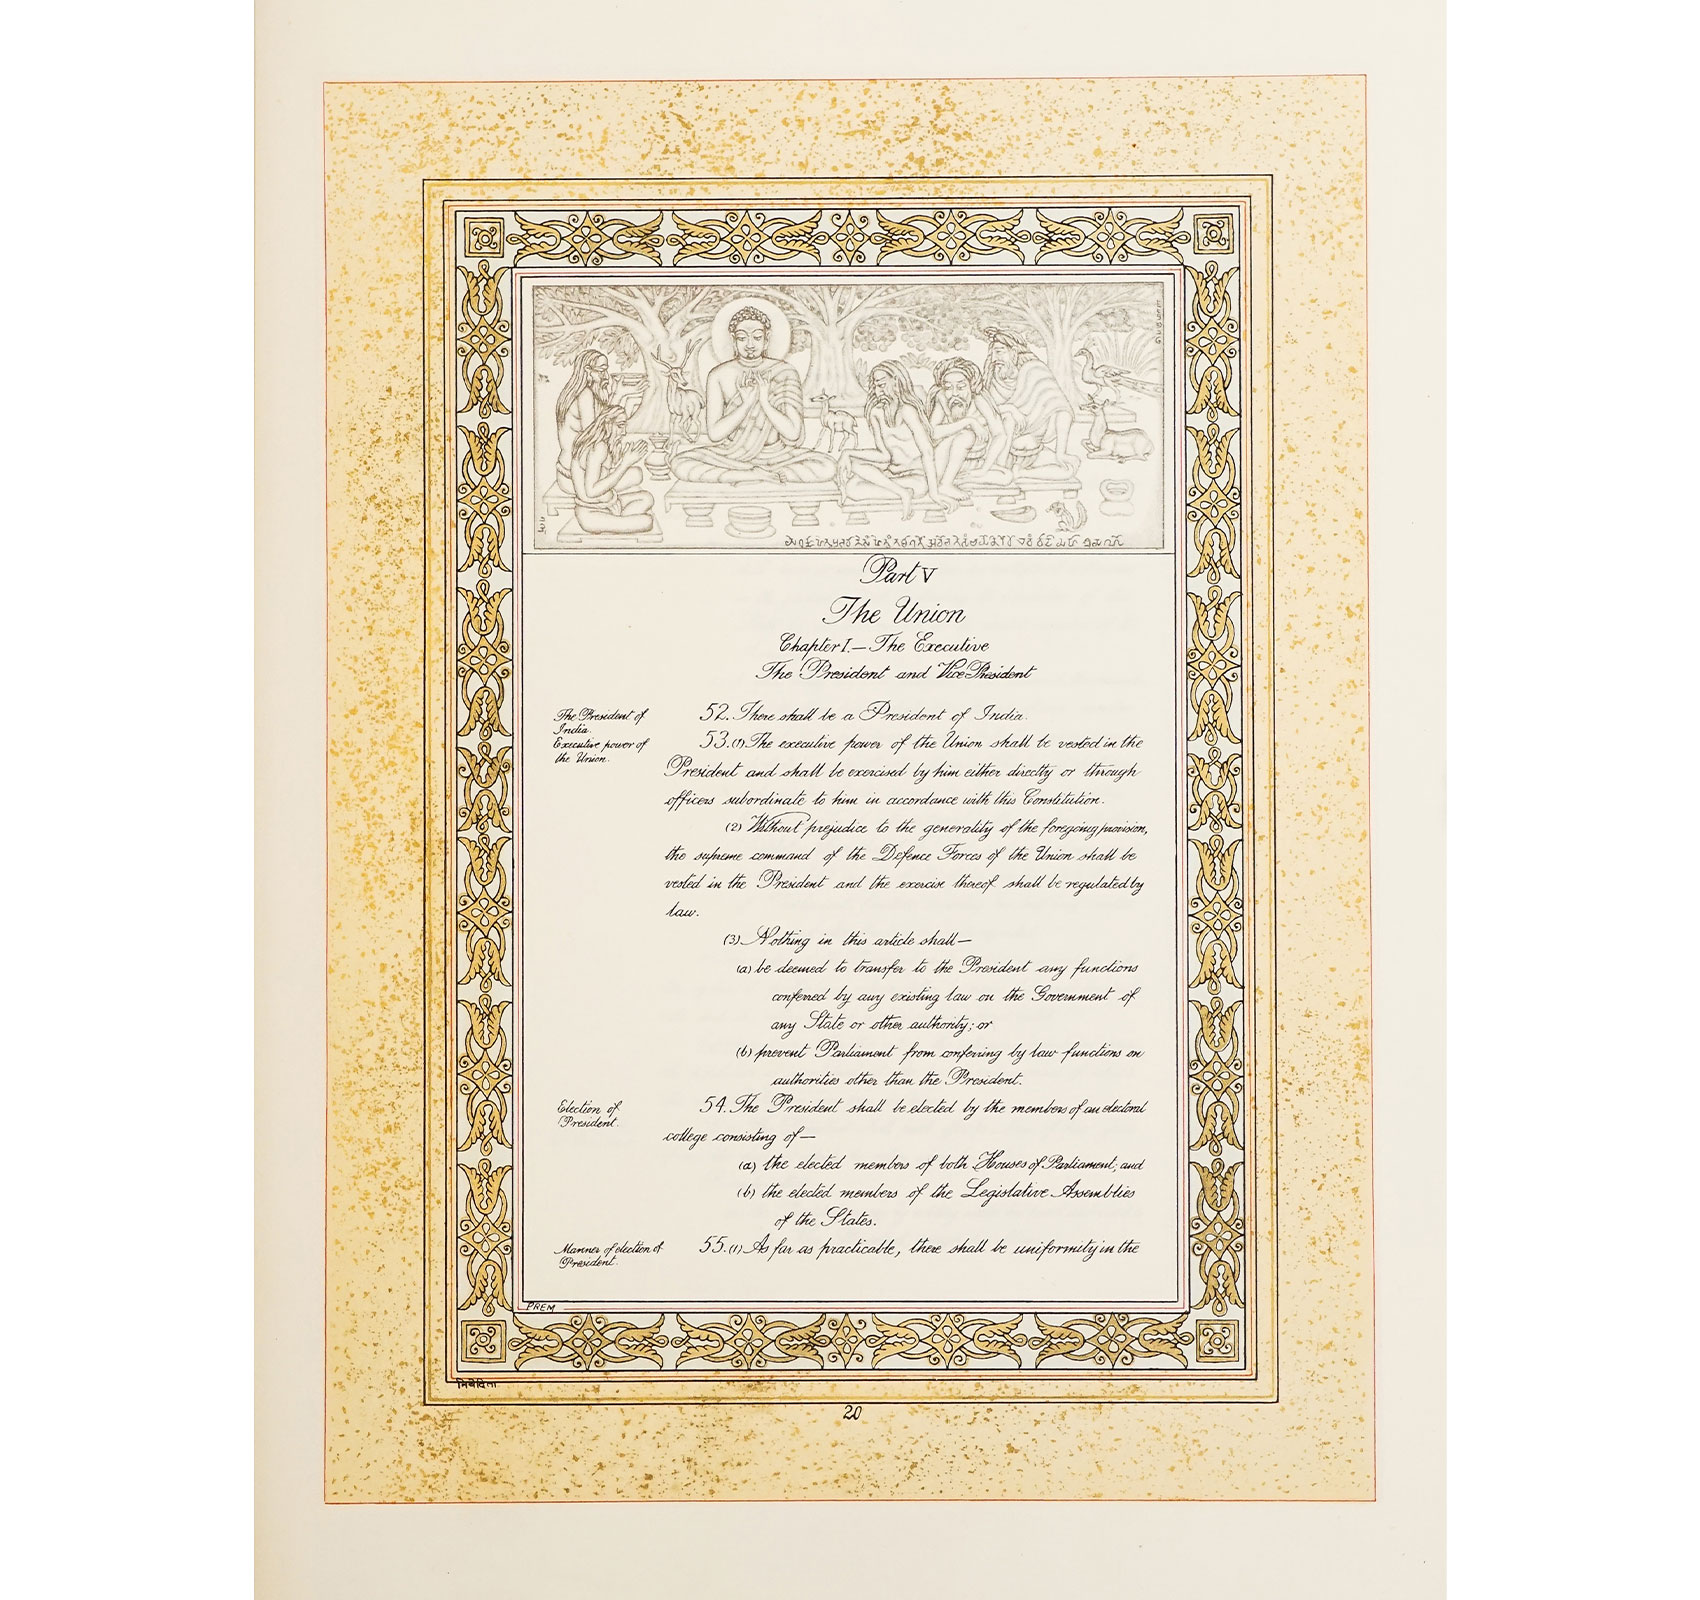 Part V
The Union
Chapter I.— The Executive
The President and Vice-President
The President of
India.
52. There shall be a President of India.
Executive power of
the Union.
53. (1) The executive power of the Union shall be vested in the
President and shall be exercised by him either directly or through
officers subordinate to him in accordance with this Constitution.
(2) Without prejudice to the generality of the foregoing provision,
the supreme command of the Defence Forces of the Union shall be
vested in the President and the exercise thereof shall be regulated by
law.
(3) Nothing in this article shall—
(a) be deemed to transfer to the President any functions
conferred by any existing law on the Government of
any State or other authority; or
(b) prevent Parliament from conferring by law functions on
authorities other than the President.
Election of
President.
54. The President shall be elected by the members of an electoral
college consisting of—
(a) the elected members of both Houses of Parliament; and
(b) the elected members of the Legislative Assemblies
of the States.
Manner of election of
President.
55. (1) As far as practicable, there shall be uniformity in the
PREM
निवेदिता
20